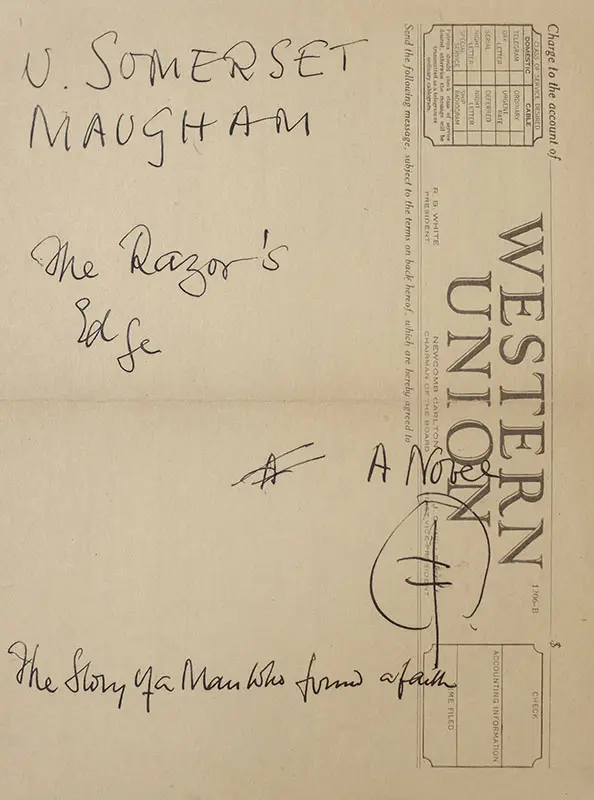 W. SOMERSET
MAUGHAM
The Razor's
Edge
A
A Novel
The Story of a Man who found a faith
Charge to the account of
$
CLASS OF SERVICE DESIRED
DOMESTIC CABLE
TELEGRAM ORDINARY
DAY LETTER URGENT RATE
SERIAL DEFERRED
NIGHT LETTER NIGHT LETTER
SPECIAL SERVICE SHIP RADIOGRAM
Patrons should check class of service
desired; otherwise the message will be
transmitted as a telegram or
ordinary cablegram.
WESTERN
UNION
1206-B
R. B. WHITE
PRESIDENT
NEWCOMB CARLTON
CHAIRMAN OF THE BOARD
VICE-PRESIDENT
CHECK
ACCOUNTING INFORMATION
ME FILED
Send the following message, subject to the terms on back hereof, which are hereby agreed to